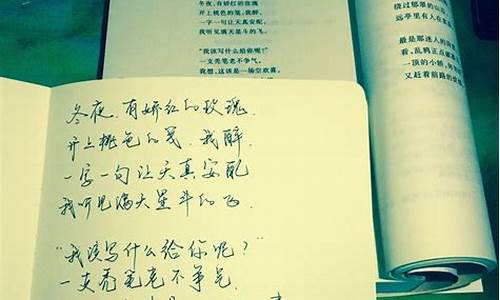 冬夜,有娇红的玫瑰
开上桃色的笺,我醉,
一字一句让天真安配,
我听见满天星斗的飞。
“我该写什么给你呢?”
一支秃笔老不争气,
我想,这该是一场空欢喜。
绕过郁翠的山
远亭里有人在
最是那迷人的
看,乱鸦正点
一顶的小轿,
又赶着前路的
冬夜,有娇红的玫瑰,
开上桃色的笺,我醉
一字一句让天真安配
我听见满天星斗的飞.
“我该写什么给你呢?”
一支秃笔老不争气.